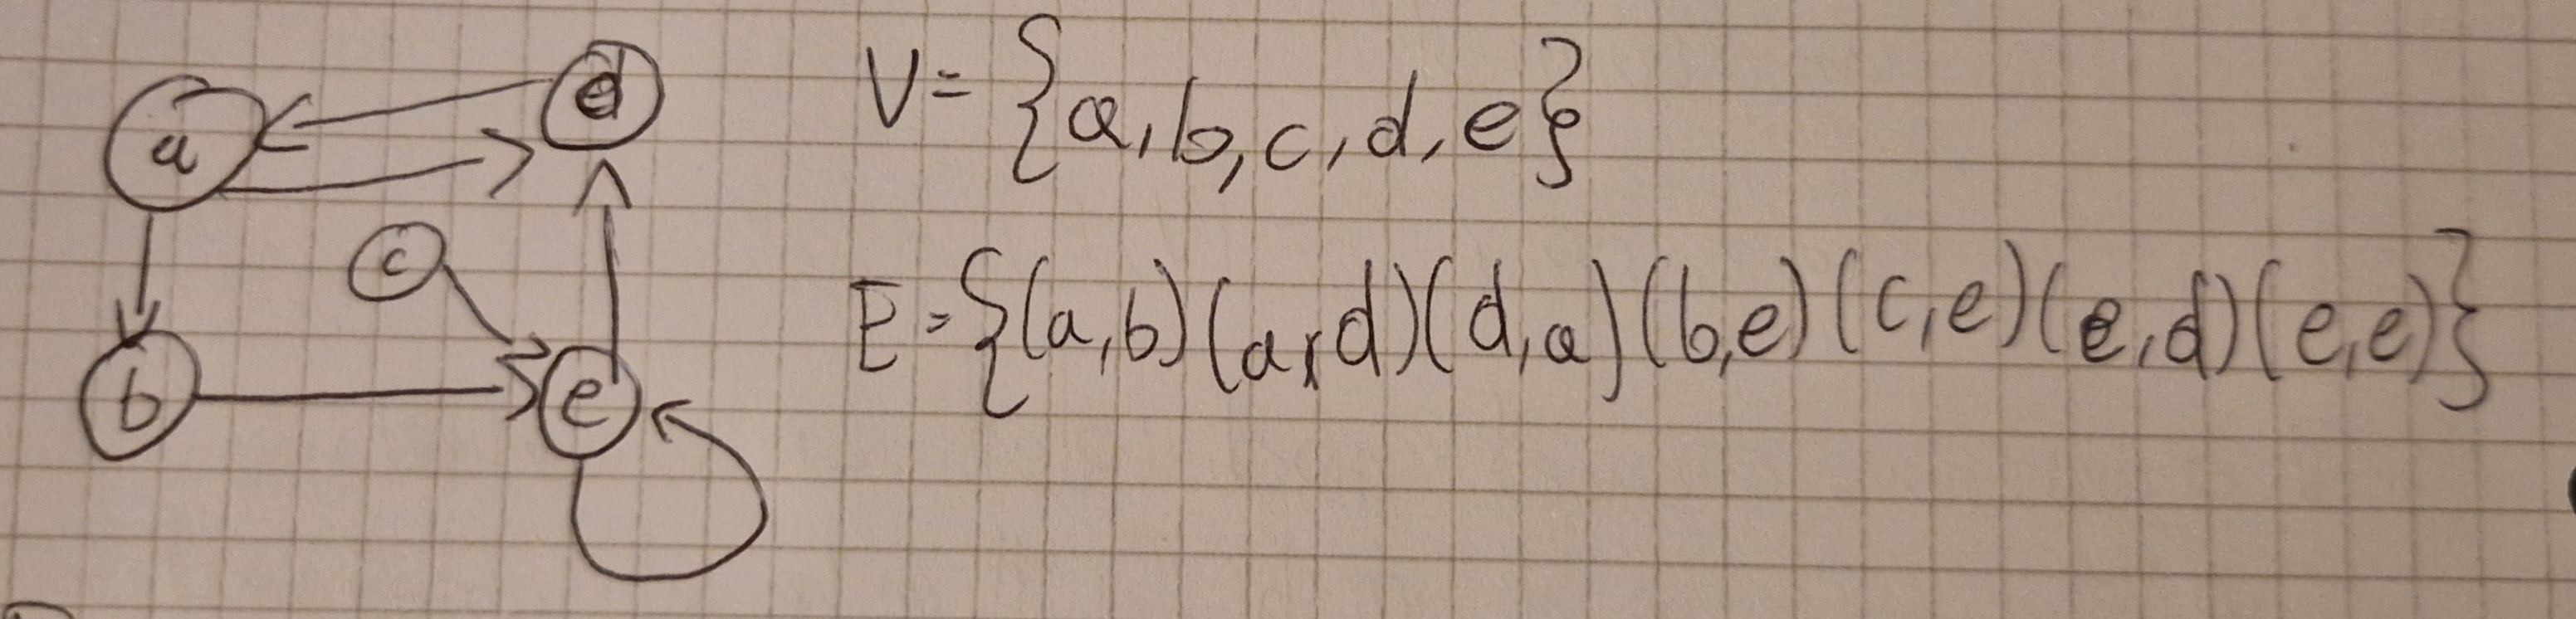 a
d
c
b
e
V= {a,b,c,d,e}
E={(a,b)(a,d)(d,a)(b,e)(c,e)(e,d)(e,e)}